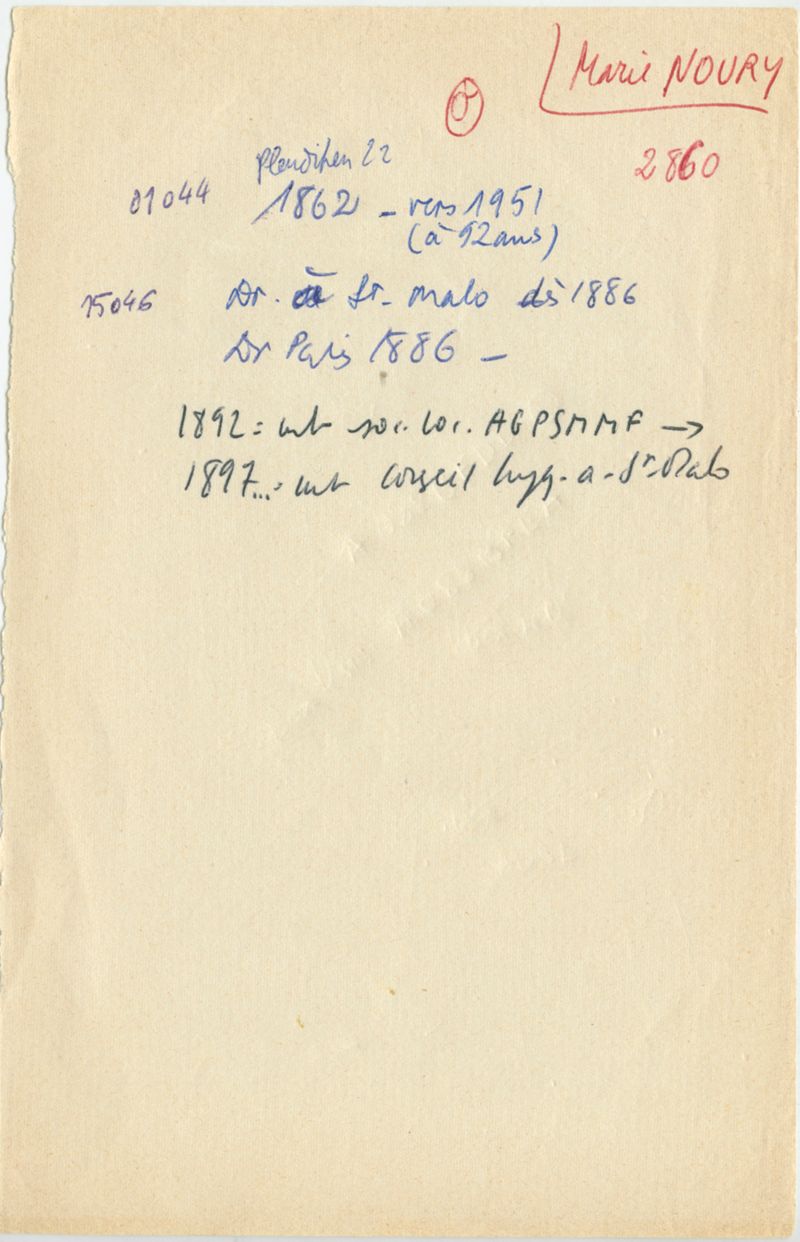 Marie NOURY
2860
Pleudihen 22
01044 1862 - vers 1951
(à 92 ans)
15046 Dr. à St-Malo dès 1886
Dr Paris 1886 -
1892 = mb soc. loc. AGPSMMF →
1897... = mb Conseil hyg. a. St-Malo